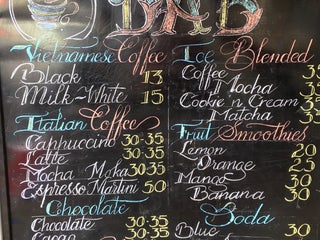 BAR
Vietnamese Coffee
Black 13
Milk-White 15
Italian Coffee
Cappuccino 30-35
Latte 30-35
Mocha Moka 30-35
Espresso Martini 50
Chocolate
Chocolate 30-35
Cacao 30-35
Ice Blended
Coffee 35
Mocha 35
Cookie n Cream 35
Matcha 35
Fruit Smoothies
Lemon 20
Orange 25
Mango 30
Banana 30
Soda
Blue 30